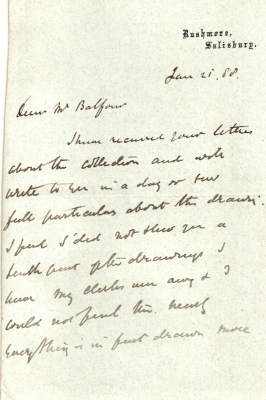 Rushmore,
Salisbury.
Jan 21. 88.
Dear Mr Balfour
I have received your letter
about the collection and will
write to you in a day or two
full particulars about the drawi
I find I did not shew you a
tenth part of the drawings I
have my clerks were away & I
could not find them. Nearly
Everything is in fact drawn more